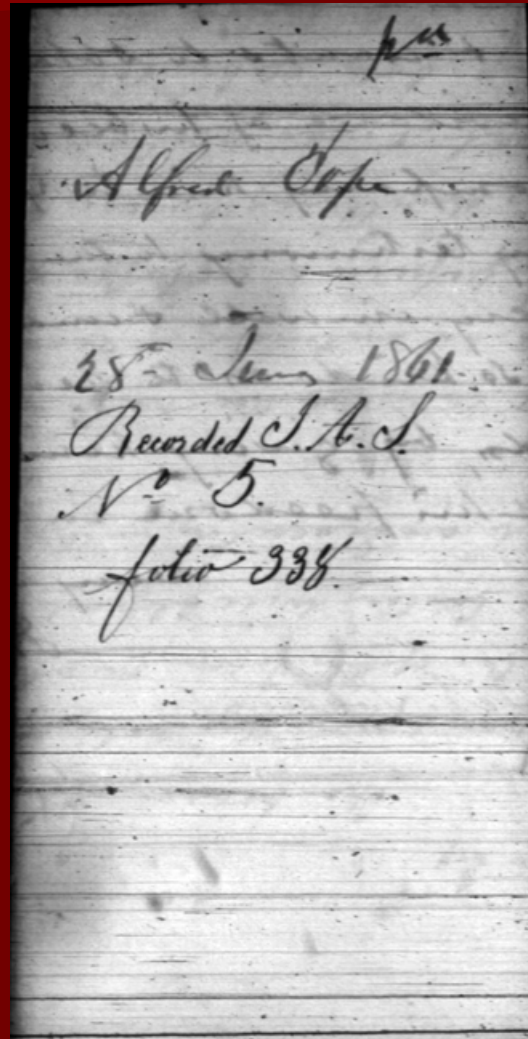 Alfred Pope
28 June 1861.
Recorded J. A. S.
No 5.
folio 338.